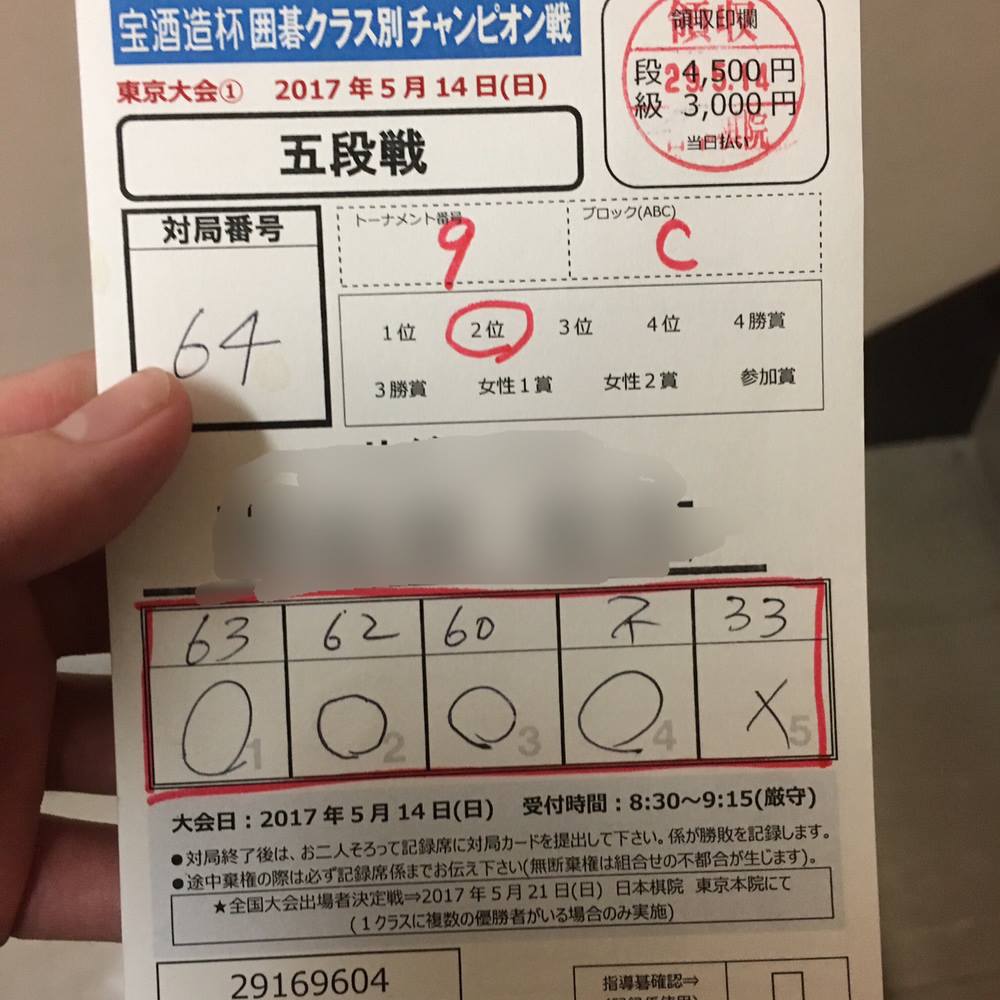 宝酒造杯囲碁クラス別チャンピオン戦
東京大会① 2017年5月14日(日)
領収印欄
領収
段 4,500円
29.5.14
級 3,000円
当日払い
五段戦
対局番号
64
トーナメント番号
9
ブロック(ABC)
C
1位 2位 3位 4位 4勝賞
3勝賞 女性1賞 女性2賞 参加賞
63 62 60 不 33
○ ○ ○ ○ ×
1 2 3 4 5
大会日:2017年5月14日(日) 受付時間:8:30～9:15(厳守)
●対局終了後は、お二人そろって記録席に対局カードを提出して下さい。係が勝敗を記録します。
●途中棄権の際は必ず記録席係までお伝え下さい(無断棄権は組合せの不都合が生じます)。
★全国大会出場者決定戦⇒2017年5月21日(日) 日本棋院 東京本院にて
(1クラスに複数の優勝者がいる場合のみ実施)
29169604
指導碁確認⇒